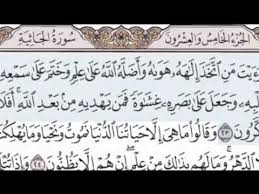 الجزء الخامس والعشرون سورة الجاثية
ءَيْتَ مَنِ ٱتَّخَذَ إِلَٰهَهُۥ هَوَىٰهُ وَأَضَلَّهُ ٱللَّهُ عَلَىٰ عِلْمٍ وَخَتَمَ عَلَىٰ سَمْعِهِ
وَجَعَلَ عَلَىٰ بَصَرِهِۦ غِشَٰوَةً فَمَن يَهْدِيهِ مِنۢ بَعْدِ ٱللَّهِ أَفَلَا
كَّرُونَ ٢٣ وَقَالُوا۟ مَا هِىَ إِلَّا حَيَاتُنَا ٱلدُّنْيَا نَمُوتُ وَنَحْيَا وَمَا يُهْلِكُنَا
ٱلدَّهْرُ وَمَا لَهُم بِذَٰلِكَ مِنْ عِلْمٍ إِنْ هُمْ إِلَّا يَظُنُّونَ ٢٤ وَإِذَا تُتْلَىٰ